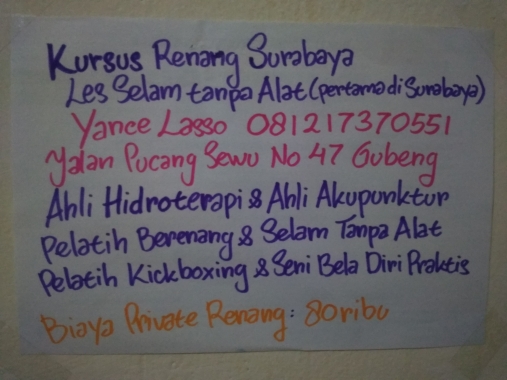 Kursus Renang Surabaya
Les Selam tanpa Alat (pertama di Surabaya)
Yance Lasso 081217370551
Jalan Pucang Sewu No 47 Gubeng
Ahli Hidroterapi & Ahli Akupunktur
Pelatih Berenang & Selam Tanpa Alat
Pelatih Kickboxing & Seni Bela Diri Praktis
Biaya Private Renang: 80ribu